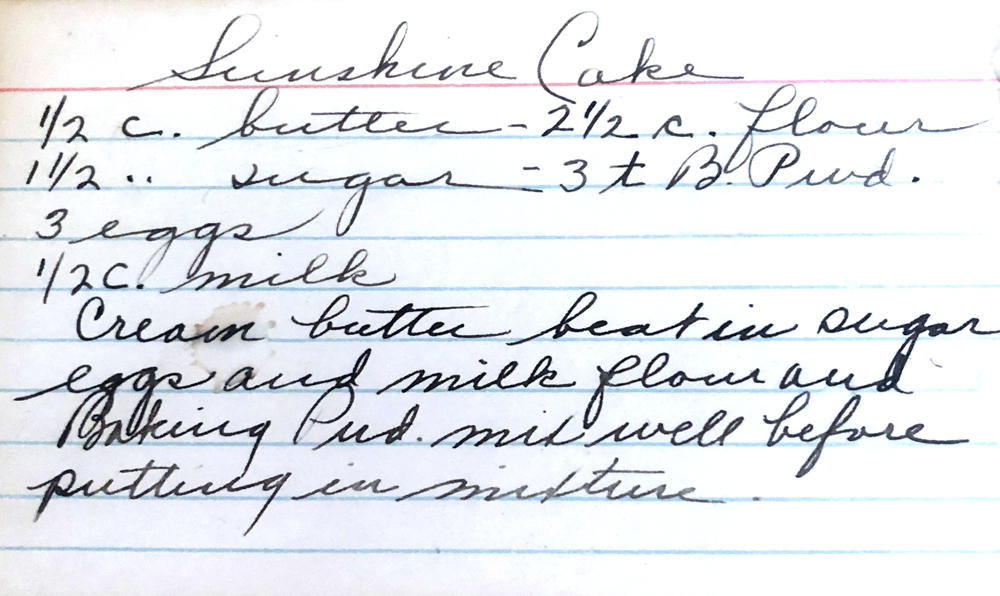 Sunshine Cake
1/2 c. butter - 2 1/2 c. flour
1 1/2 .. sugar = 3 t B. Pwd.
3 eggs
1/2 c. milk
Cream butter beat in sugar
eggs and milk flour and
Baking Pwd. mix well before
putting in mixture.